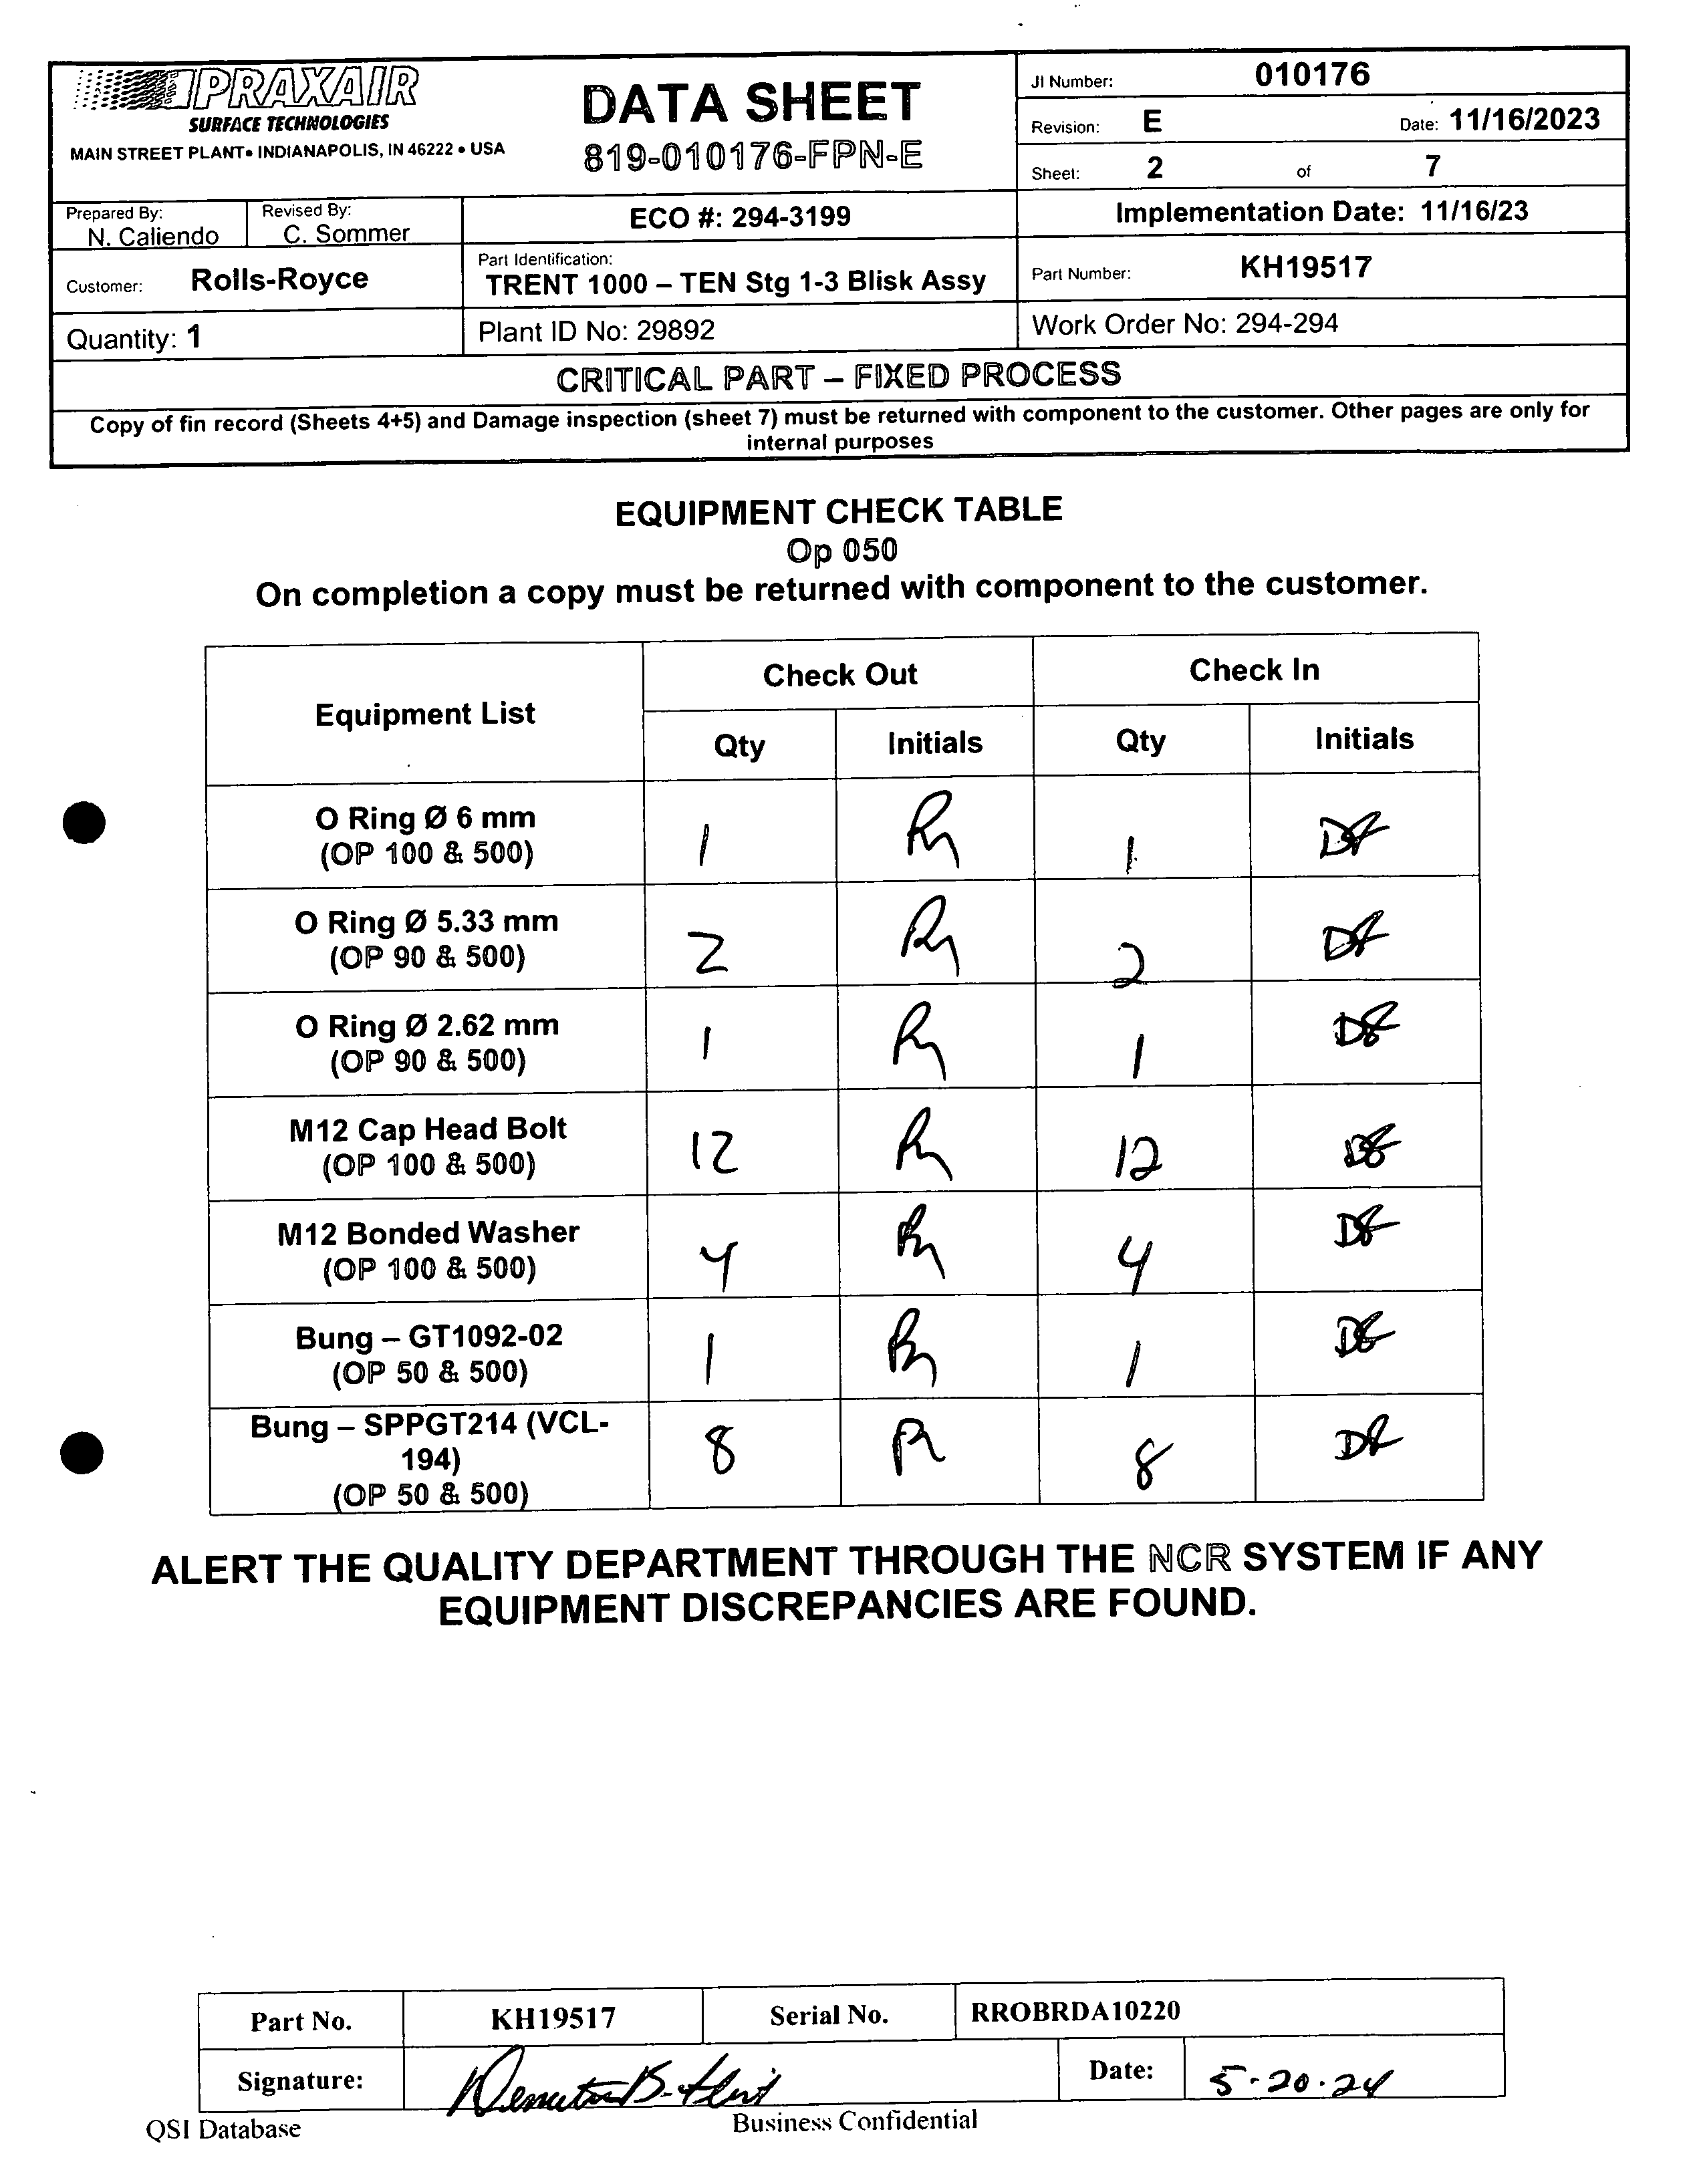 PRAXAIR
SURFACE TECHNOLOGIES
MAIN STREET PLANT• INDIANAPOLIS, IN 46222 • USA
DATA SHEET
819-010176-FPN-E
JI Number: 010176
Revision: E Date: 11/16/2023
Sheet: 2 of 7
Prepared By: N. Caliendo
Revised By: C. Sommer
ECO #: 294-3199
Implementation Date: 11/16/23
Customer: Rolls-Royce
Part Identification:
TRENT 1000 – TEN Stg 1-3 Blisk Assy
Part Number: KH19517
Quantity: 1
Plant ID No: 29892
Work Order No: 294-294
CRITICAL PART – FIXED PROCESS
Copy of fin record (Sheets 4+5) and Damage inspection (sheet 7) must be returned with component to the customer. Other pages are only for
internal purposes
EQUIPMENT CHECK TABLE
Op 050
On completion a copy must be returned with component to the customer.
Equipment List
Check Out
Check In
Qty Initials Qty Initials
O Ring Ø 6 mm
(OP 100 & 500)
1 1
O Ring Ø 5.33 mm
(OP 90 & 500)
2 2
O Ring Ø 2.62 mm
(OP 90 & 500)
1 1
M12 Cap Head Bolt
(OP 100 & 500)
12 12
M12 Bonded Washer
(OP 100 & 500)
4 4
Bung – GT1092-02
(OP 50 & 500)
1 1
Bung – SPPGT214 (VCL-
194)
(OP 50 & 500)
8 8
ALERT THE QUALITY DEPARTMENT THROUGH THE NCR SYSTEM IF ANY
EQUIPMENT DISCREPANCIES ARE FOUND.
Part No. KH19517 Serial No. RROBRDA10220
Signature:
Date: 5-20-24
QSI Database
Business Confidential